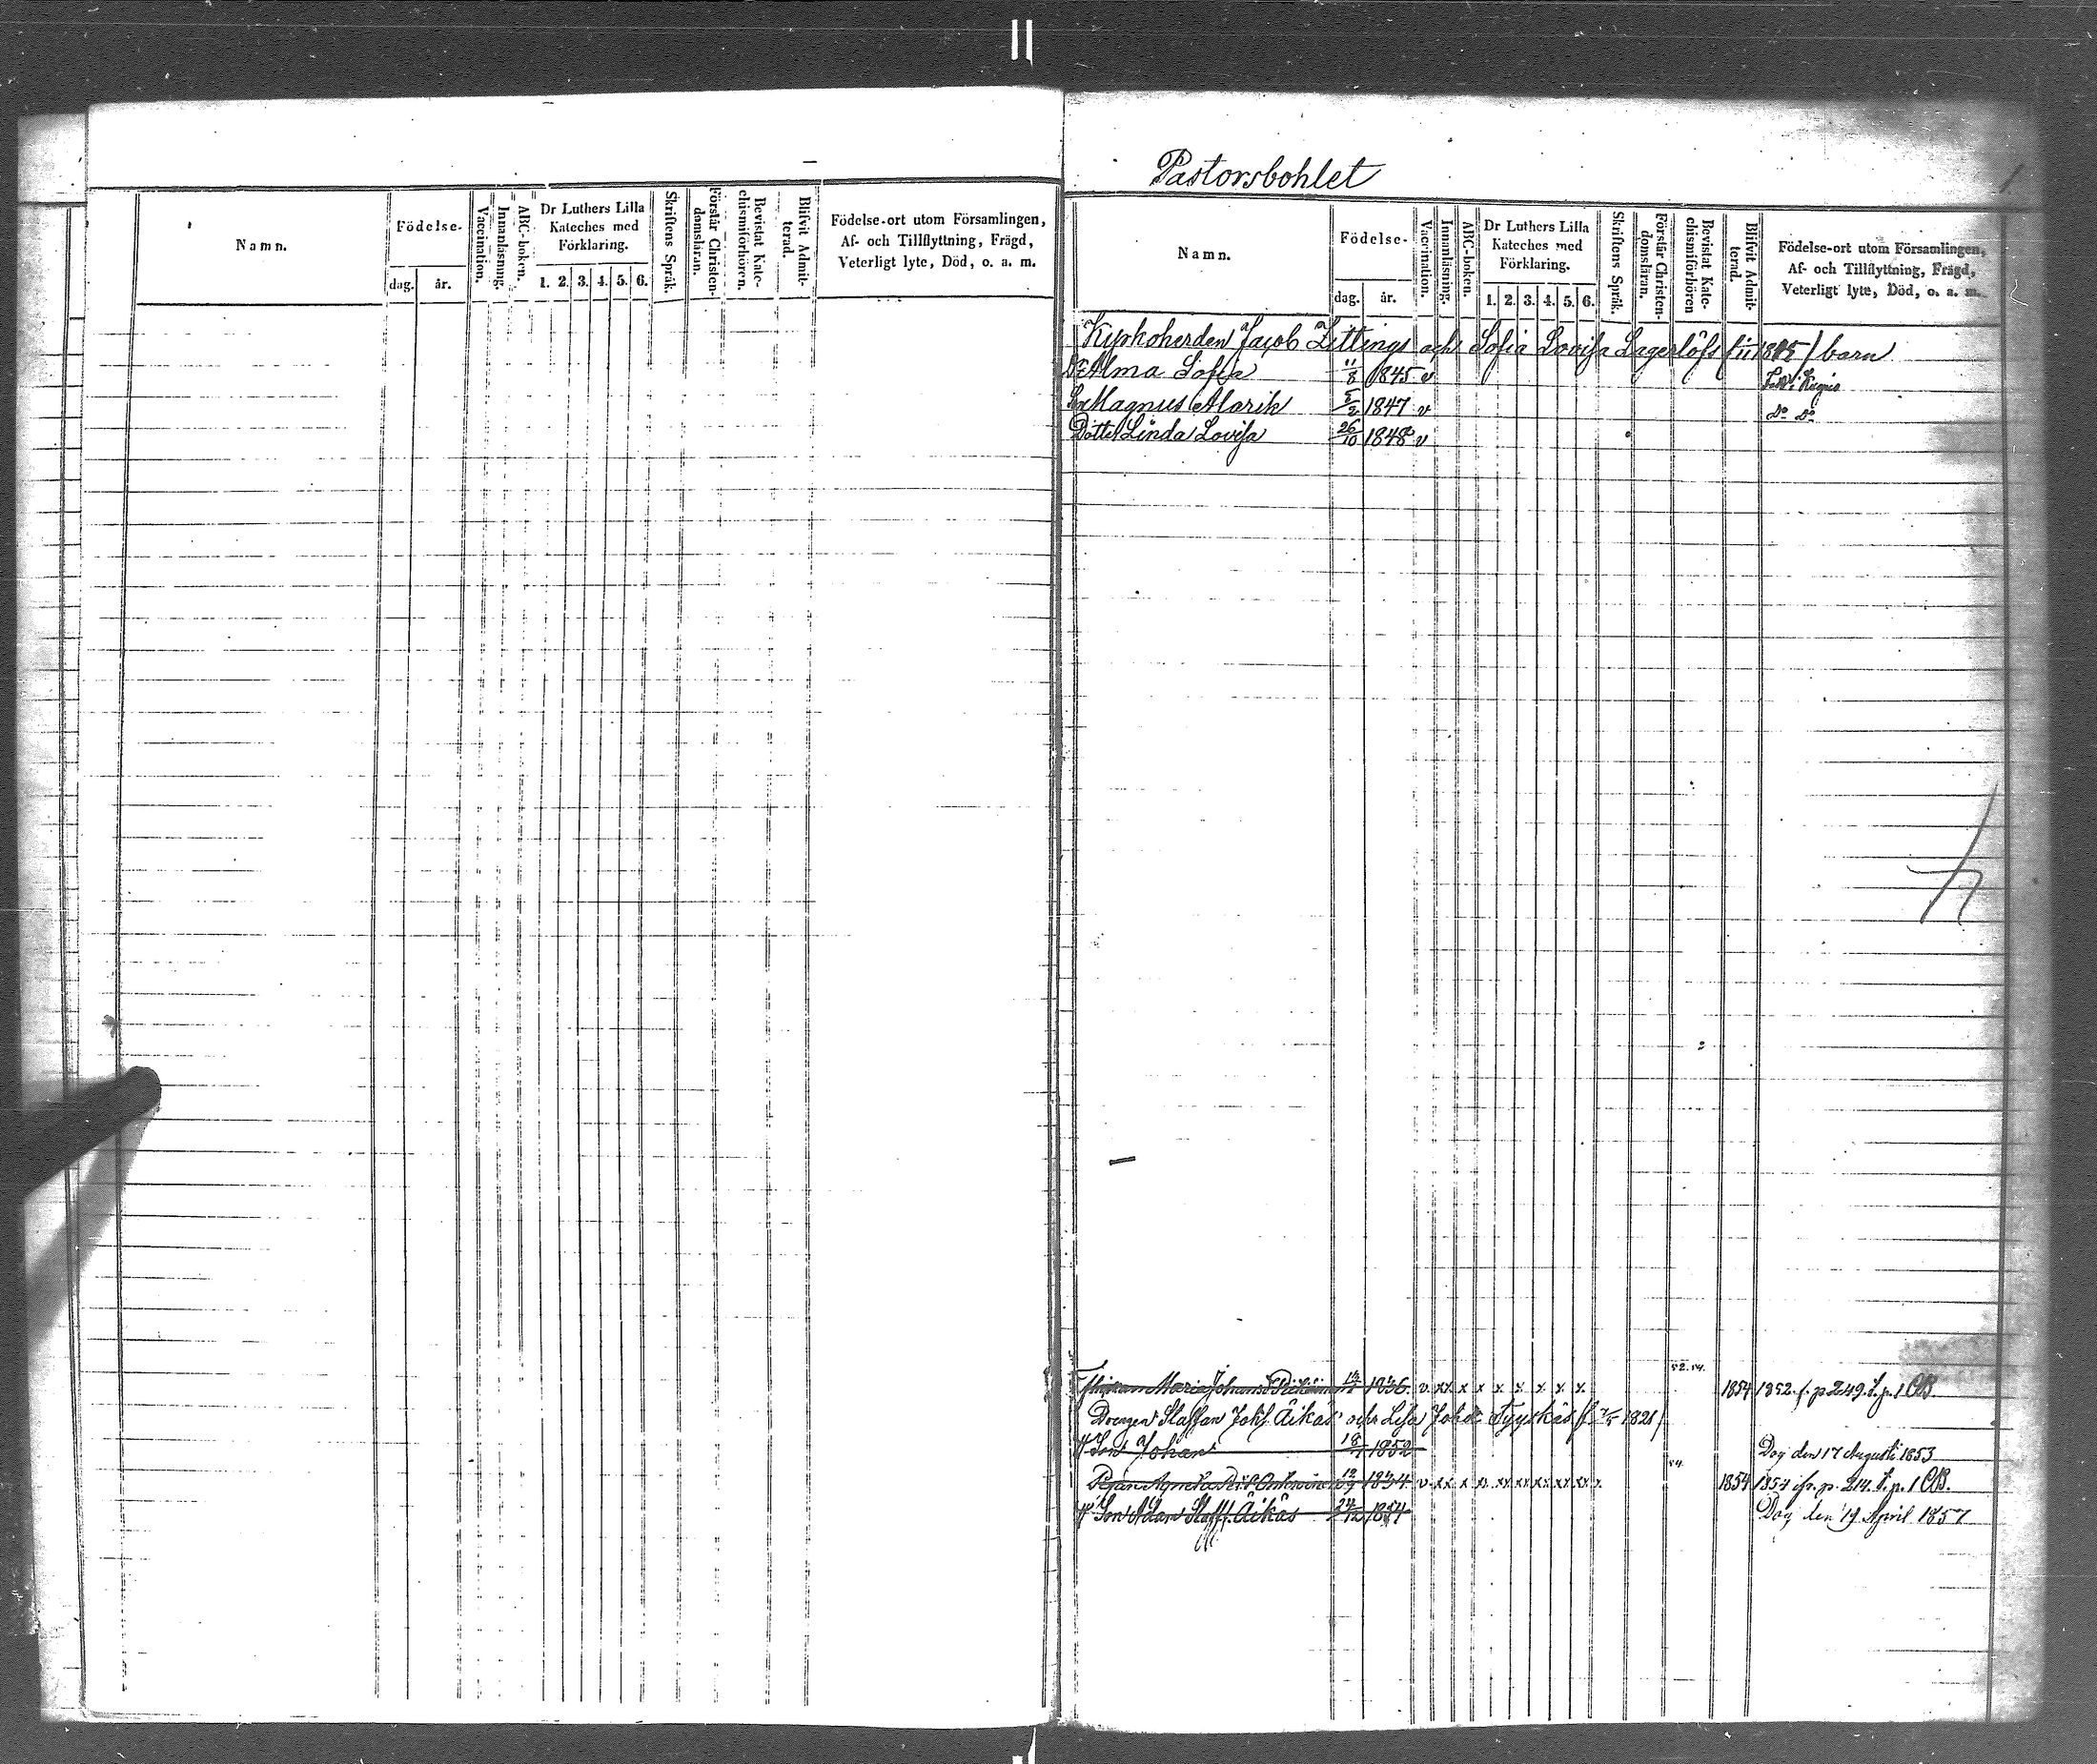 Namn.
Födelse-
dag. år.
Vaccination.
Innanläsning.
ABC-boken.
Dr Luthers Lilla
Kateches med
Förklaring.
1. 2. 3. 4. 5. 6.
Skriftens Språk.
Förstår Christen-
domsläran.
Bevistat Kate-
chismiförhören.
Blifvit Admit-
terad.
Födelse-ort utom Församlingen,
Af- och Tillflyttning, Frägd,
Veterligt lyte, Död, o. a. m.
Pastorsbohlet
1
Namn.
Födelse-
dag. år.
Vaccination.
Innanläsning.
ABC-boken.
Dr Luthers Lilla
Kateches med
Förklaring.
1. 2. 3. 4. 5. 6.
Skriftens Språk.
Förstår Christen-
domsläran.
Bevistat Kate-
chismiförhören
Blifvit Admit-
terad.
Födelse-ort utom Församlingen,
Af- och Tillflyttning, Frägd,
Veterligt lyte, Död, o. a. m.
Kyrkoherden Jacob Zittings och Sofia Lovisa Lagerlöfs barn
Alma Sofia 11/8 1845 v
Son Magnus Alarik 1847 v do do
Dotter Linda Lovisa 26/10 1848 v
52. 54.
Maria 1836. v xx x x x x x x x 1854 1852 f. p 249. t. p. 1 CB.
Drengen Staffan Äikäs och Lisa 1821
Son Johan 1852 Dog den 17 Augusti 1853
54
1834 v xx x 1854 1854 fr. p. 214. t. p. 1 CB.
Son Adam Staff. Äikäs 24/12 1854 Dog den 19 April 1857